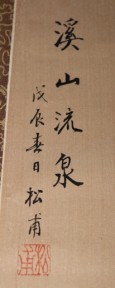 溪山流泉
戊辰春日松甫
松甫